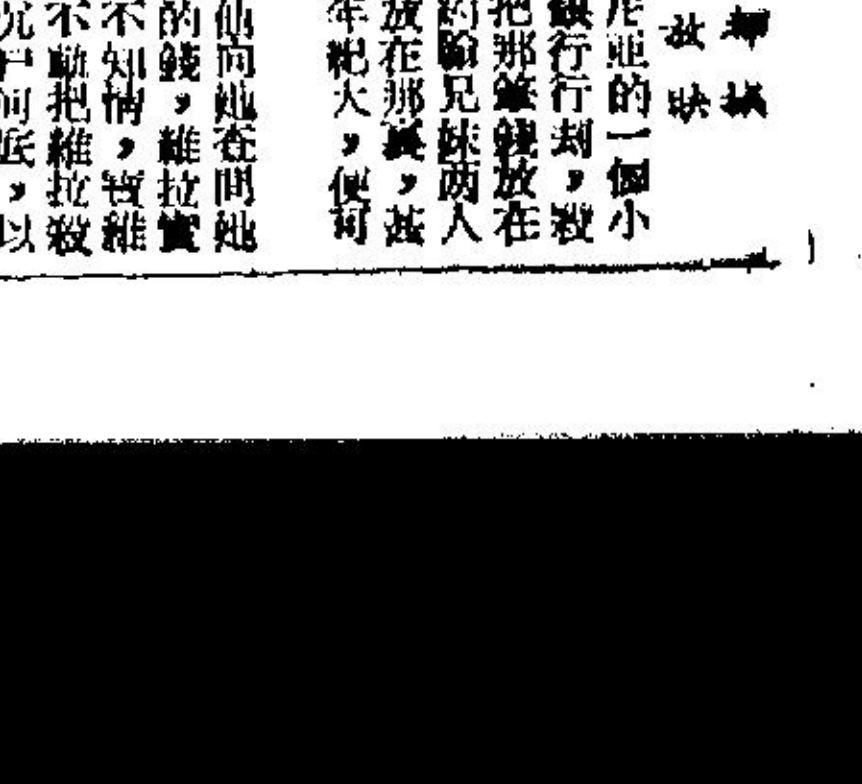 放映
尼亞的一個小
行行刼，殺
把那筆錢放在
約翰兄妹两人
放在那裏，甚
年紀大，便可
他向她查問她
的錢，維拉實
不知情，實維
不   把維拉殺
沉尸河底，以